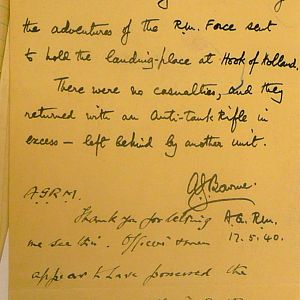 the adventures of the R.M. Force sent
to hold the landing-place at Hook of Holland.
There were no casualties, and they
returned with an Anti-tank Rifle in
excess – left behind by another unit.
A.G.R.M.
A.G. R.M.
17.5.40.
Thank you for letting
me see this. Officers & men
appear to have possessed the